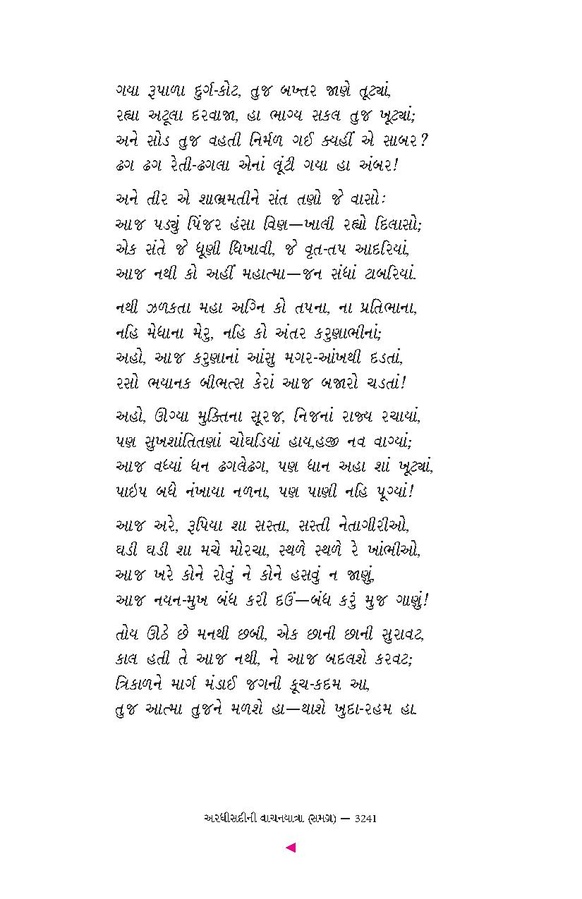 ગયા રૂપાળા દુર્ગ-કોટ, તુજ બખ્તર જાણે તૂટ્યાં,
રહ્યા અટૂલા દરવાજા, હા ભાગ્ય સકલ તુજ ખૂટ્યાં;
અને સોડ તુજ વહતી નિર્મળ ગઈ ક્યહીં એ સાબર?
ઢગ ઢગ રેતી-ઢગલા એનાં લૂંટી ગયા હા અંબર!
અને તીર એ શાભ્રમતીને સંત તણો જે વાસોઃ
આજ પડ્યું પિંજર હંસા વિણ—ખાલી રહ્યો દિલાસો;
એક સંતે જે ધૂણી ધિખાવી, જે વૃત-તપ આદરિયાં,
આજ નથી કો અહીં મહાત્મા—જન સંધાં ટાબરિયાં.
નથી ઝળકતા મહા અગ્નિ કો તપના, ના પ્રતિભાના,
નહિ મેધાના મેરુ, નહિ કો અંતર કરુણાભીનાં;
અહો, આજ કરુણાનાં આંસુ મગર-આંખથી દડતાં,
રસો ભયાનક બીભત્સ કેરાં આજ બજારો ચડતાં!
અહો, ઊગ્યા મુક્તિના સૂરજ, નિજનાં રાજ્ય રચાયાં,
પણ સુખશાંતિતણાં ચોઘડિયાં હાય,હજી નવ વાગ્યાં;
આજ વધ્યાં ધન ઢગલેઢગ, પણ ધાન અહા શાં ખૂટ્યાં,
પાઇપ બધે નંખાયા નળના, પણ પાણી નહિ પૂગ્યાં!
આજ અરે, રૂપિયા શા સસ્તા, સસ્તી નેતાગીરીઓ,
ઘડી ઘડી શા મચે મોરચા, સ્થળે સ્થળે રે ખાંભીઓ,
આજ ખરે કોને રોવું ને કોને હસવું ન જાણું,
આજ નયન-મુખ બંધ કરી દઉં—બંધ કરું મુજ ગાણું!
તોય ઊઠે છે મનથી છબી, એક છાની છાની સુરાવટ,
કાલ હતી તે આજ નથી, ને આજ બદલશે કરવટ;
ત્રિકાળને માર્ગ મંડાઈ જગની કૂચ-કદમ આ,
તુજ આત્મા તુજને મળશે હા—થાશે ખુદા-રહમ હા.
અરધીસદીની વાચનયાત્રા (સમગ્ર) — 3241